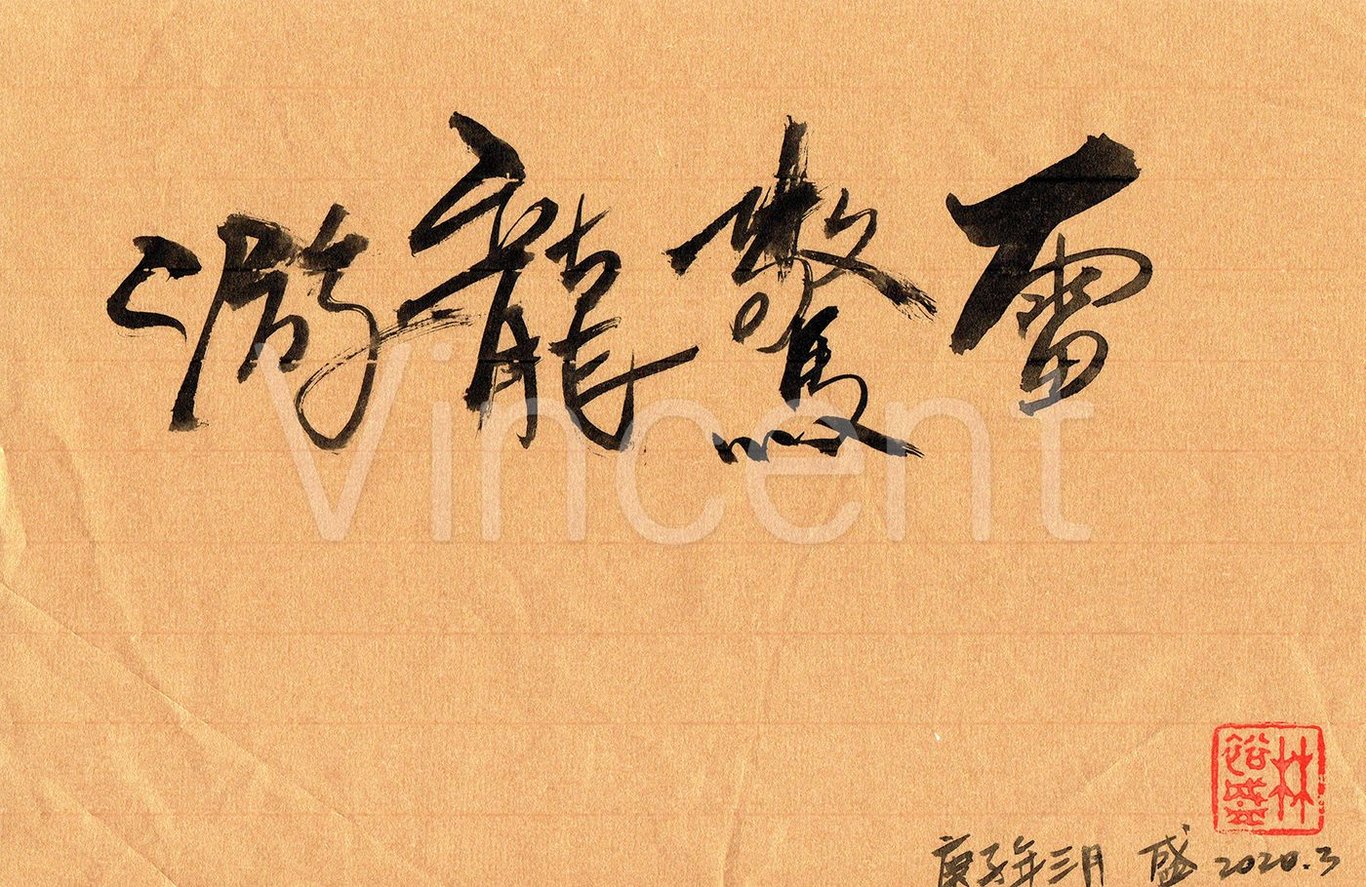 游龍驚雷
Vincent
林裕盛
庚子年三月 盛 2020.3